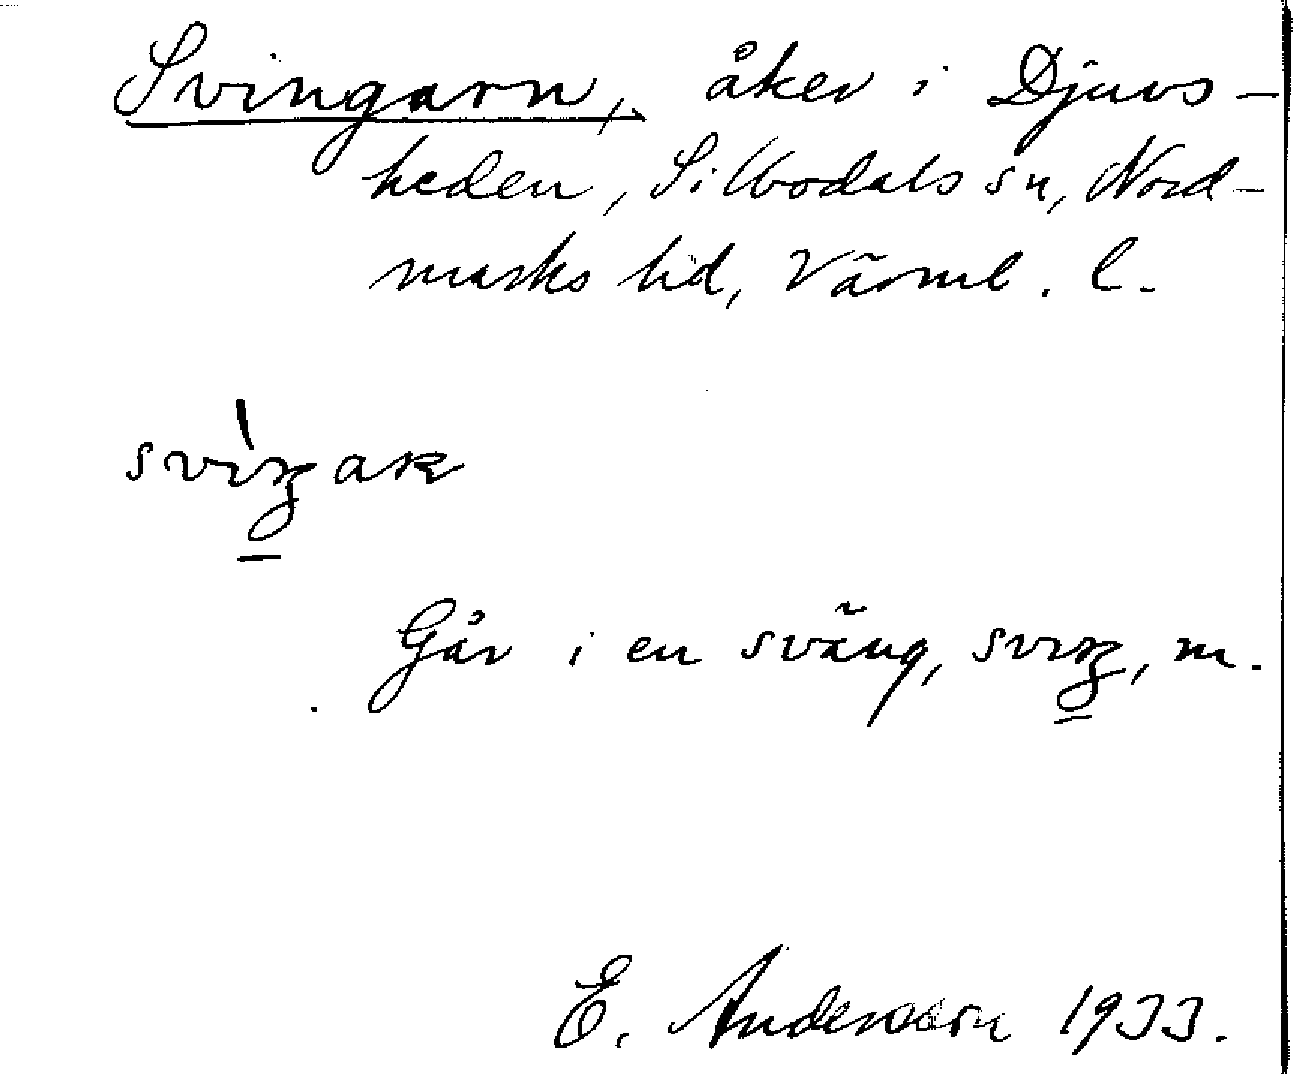 Svingarn, åker i Djurs-
heden, Silbodals sn, Nord-
marks hd, Värml. l.
svıŋaʀ
Går i en sväng, svıŋ, m.
E. Andersson 1933.